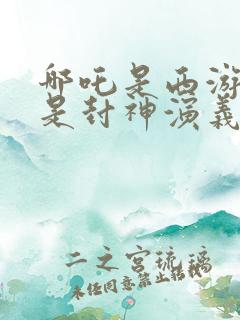 哪吒是西游
是封神演義
二之宮琉璃
未经同意禁止转载